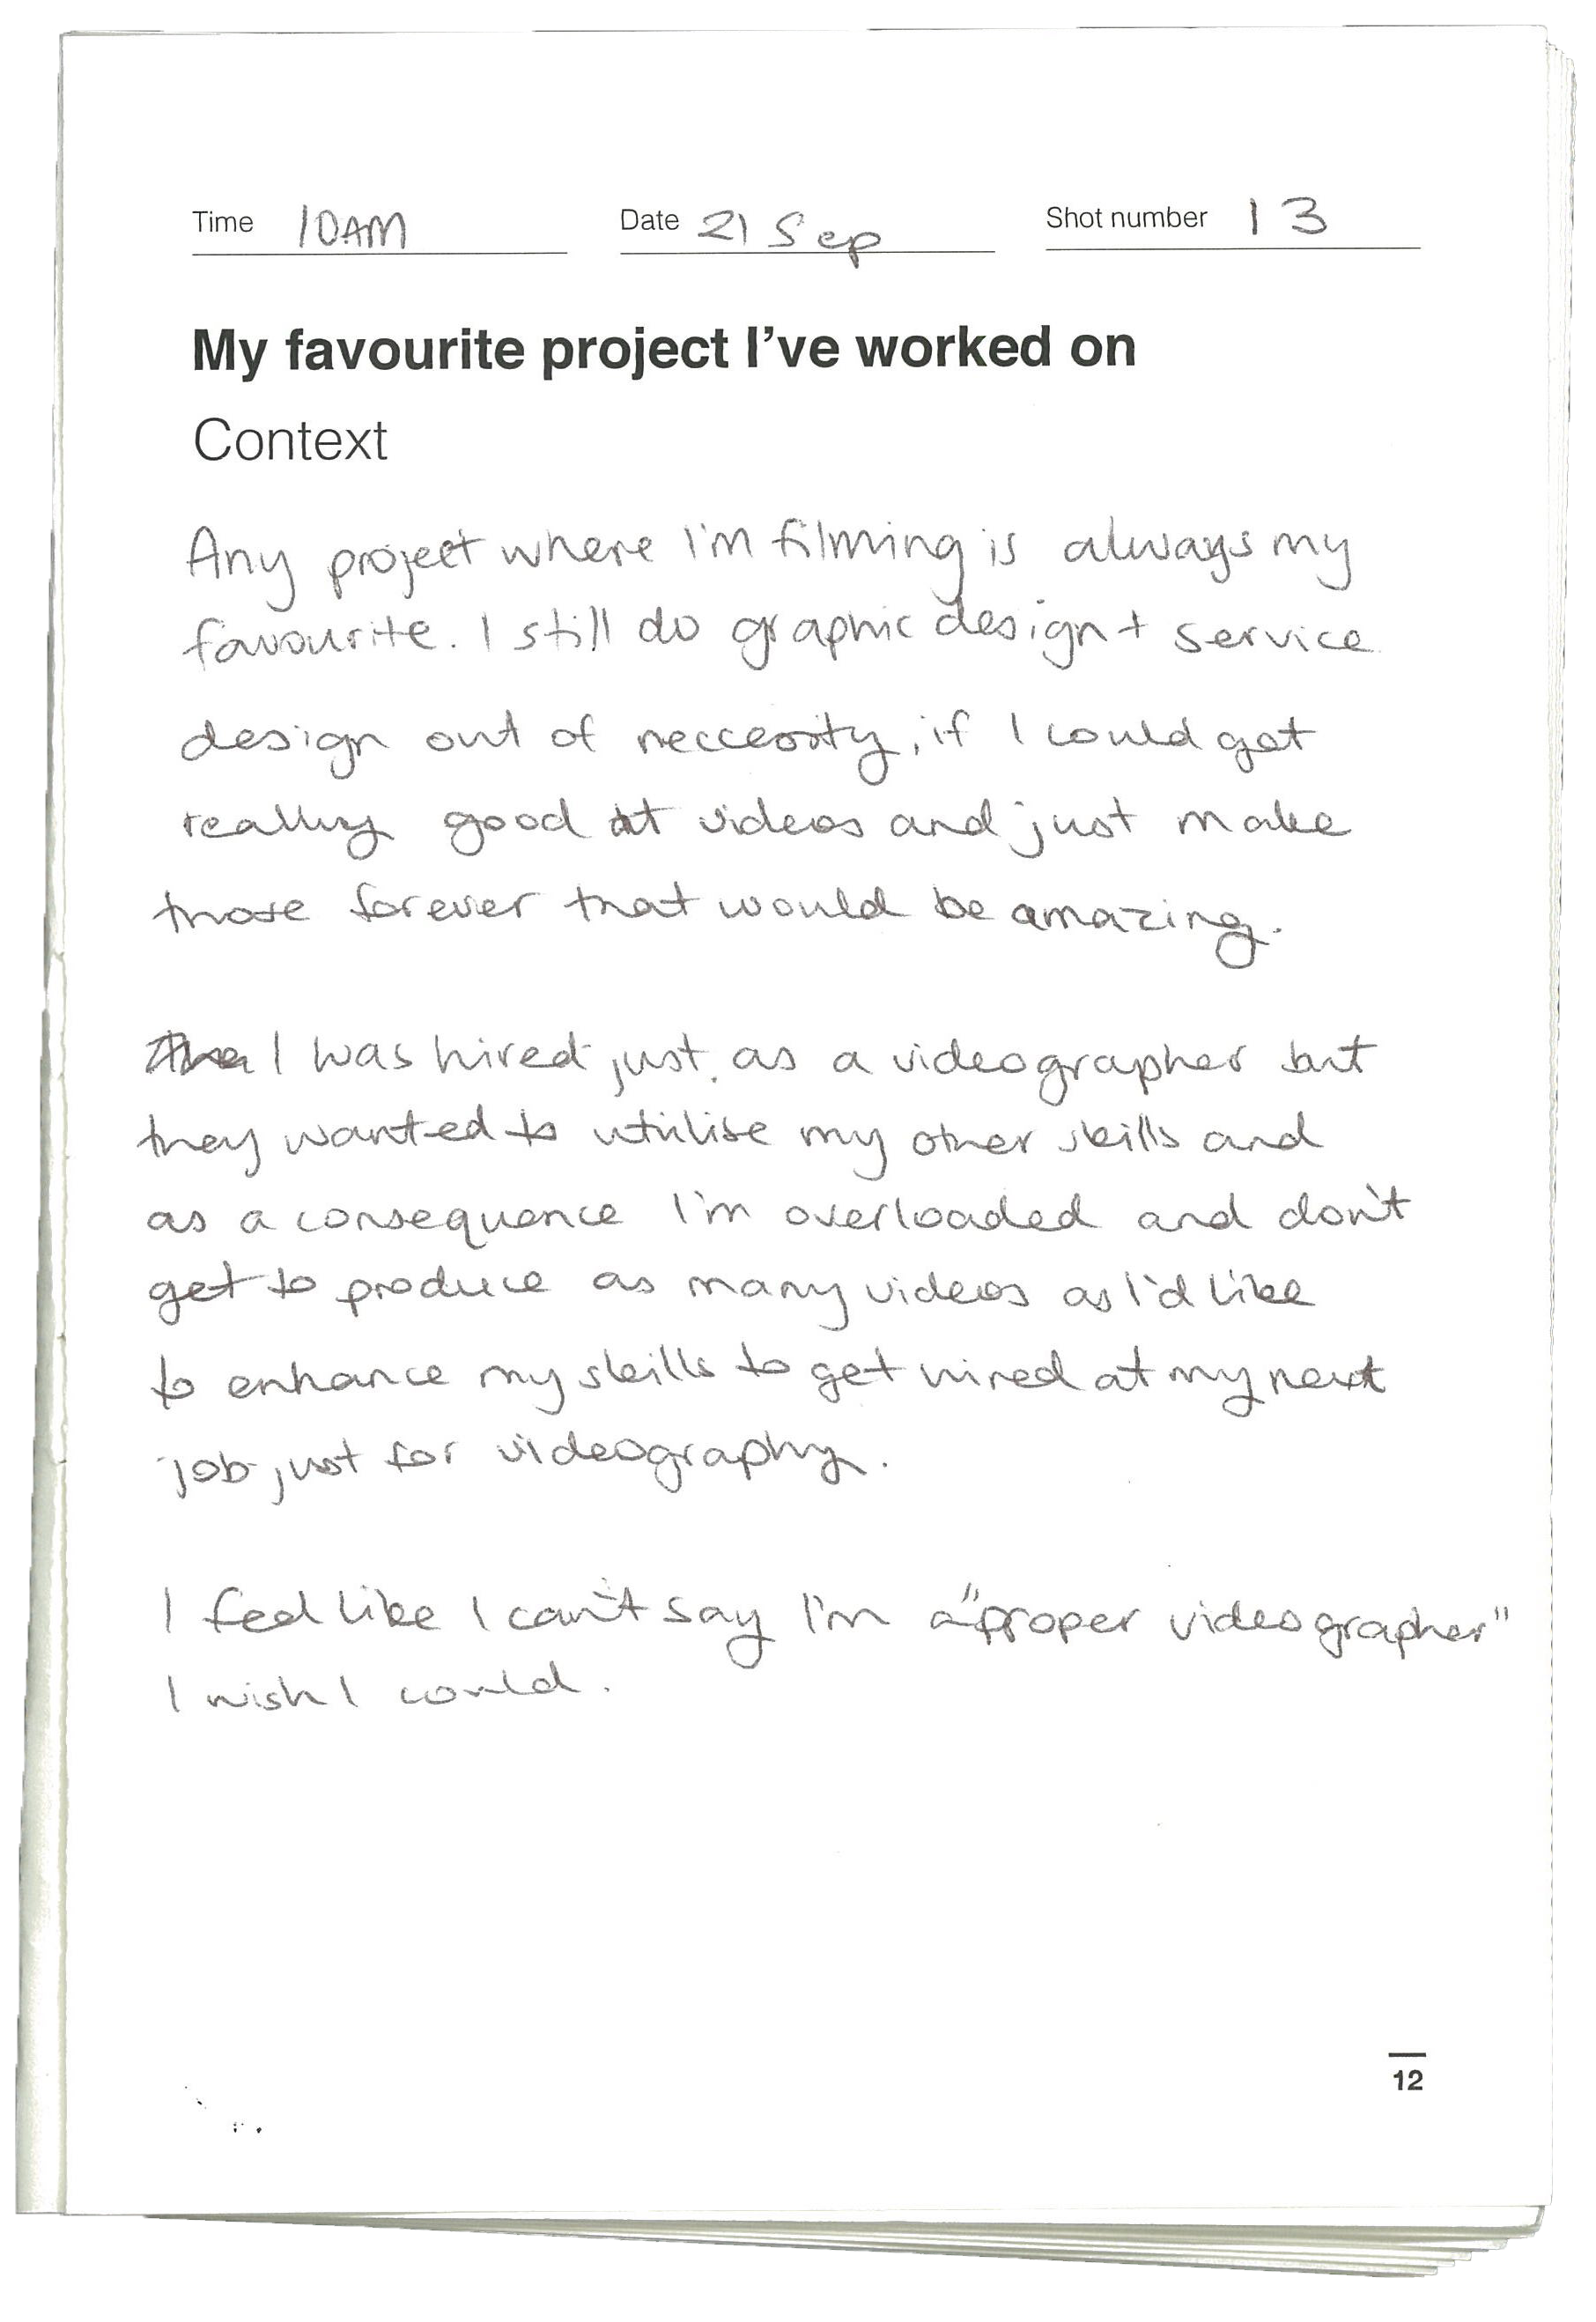 Time 10AM Date 21 Sep Shot number 13
My favourite project I've worked on
Context
Any project where I'm filming is always my
favourite. I still do graphic design + service
design out of neccessity, if I could get
really good at videos and just make
those forever that would be amazing.
I was hired just as a videographer but
they wanted to utilise my other skills and
as a consequence I'm overloaded and don't
get to produce as many videos as I'd like
to enhance my skills to get hired at my next
job just for videography.
I feel like I can't say I'm a "proper videographer"
I wish I could.
12